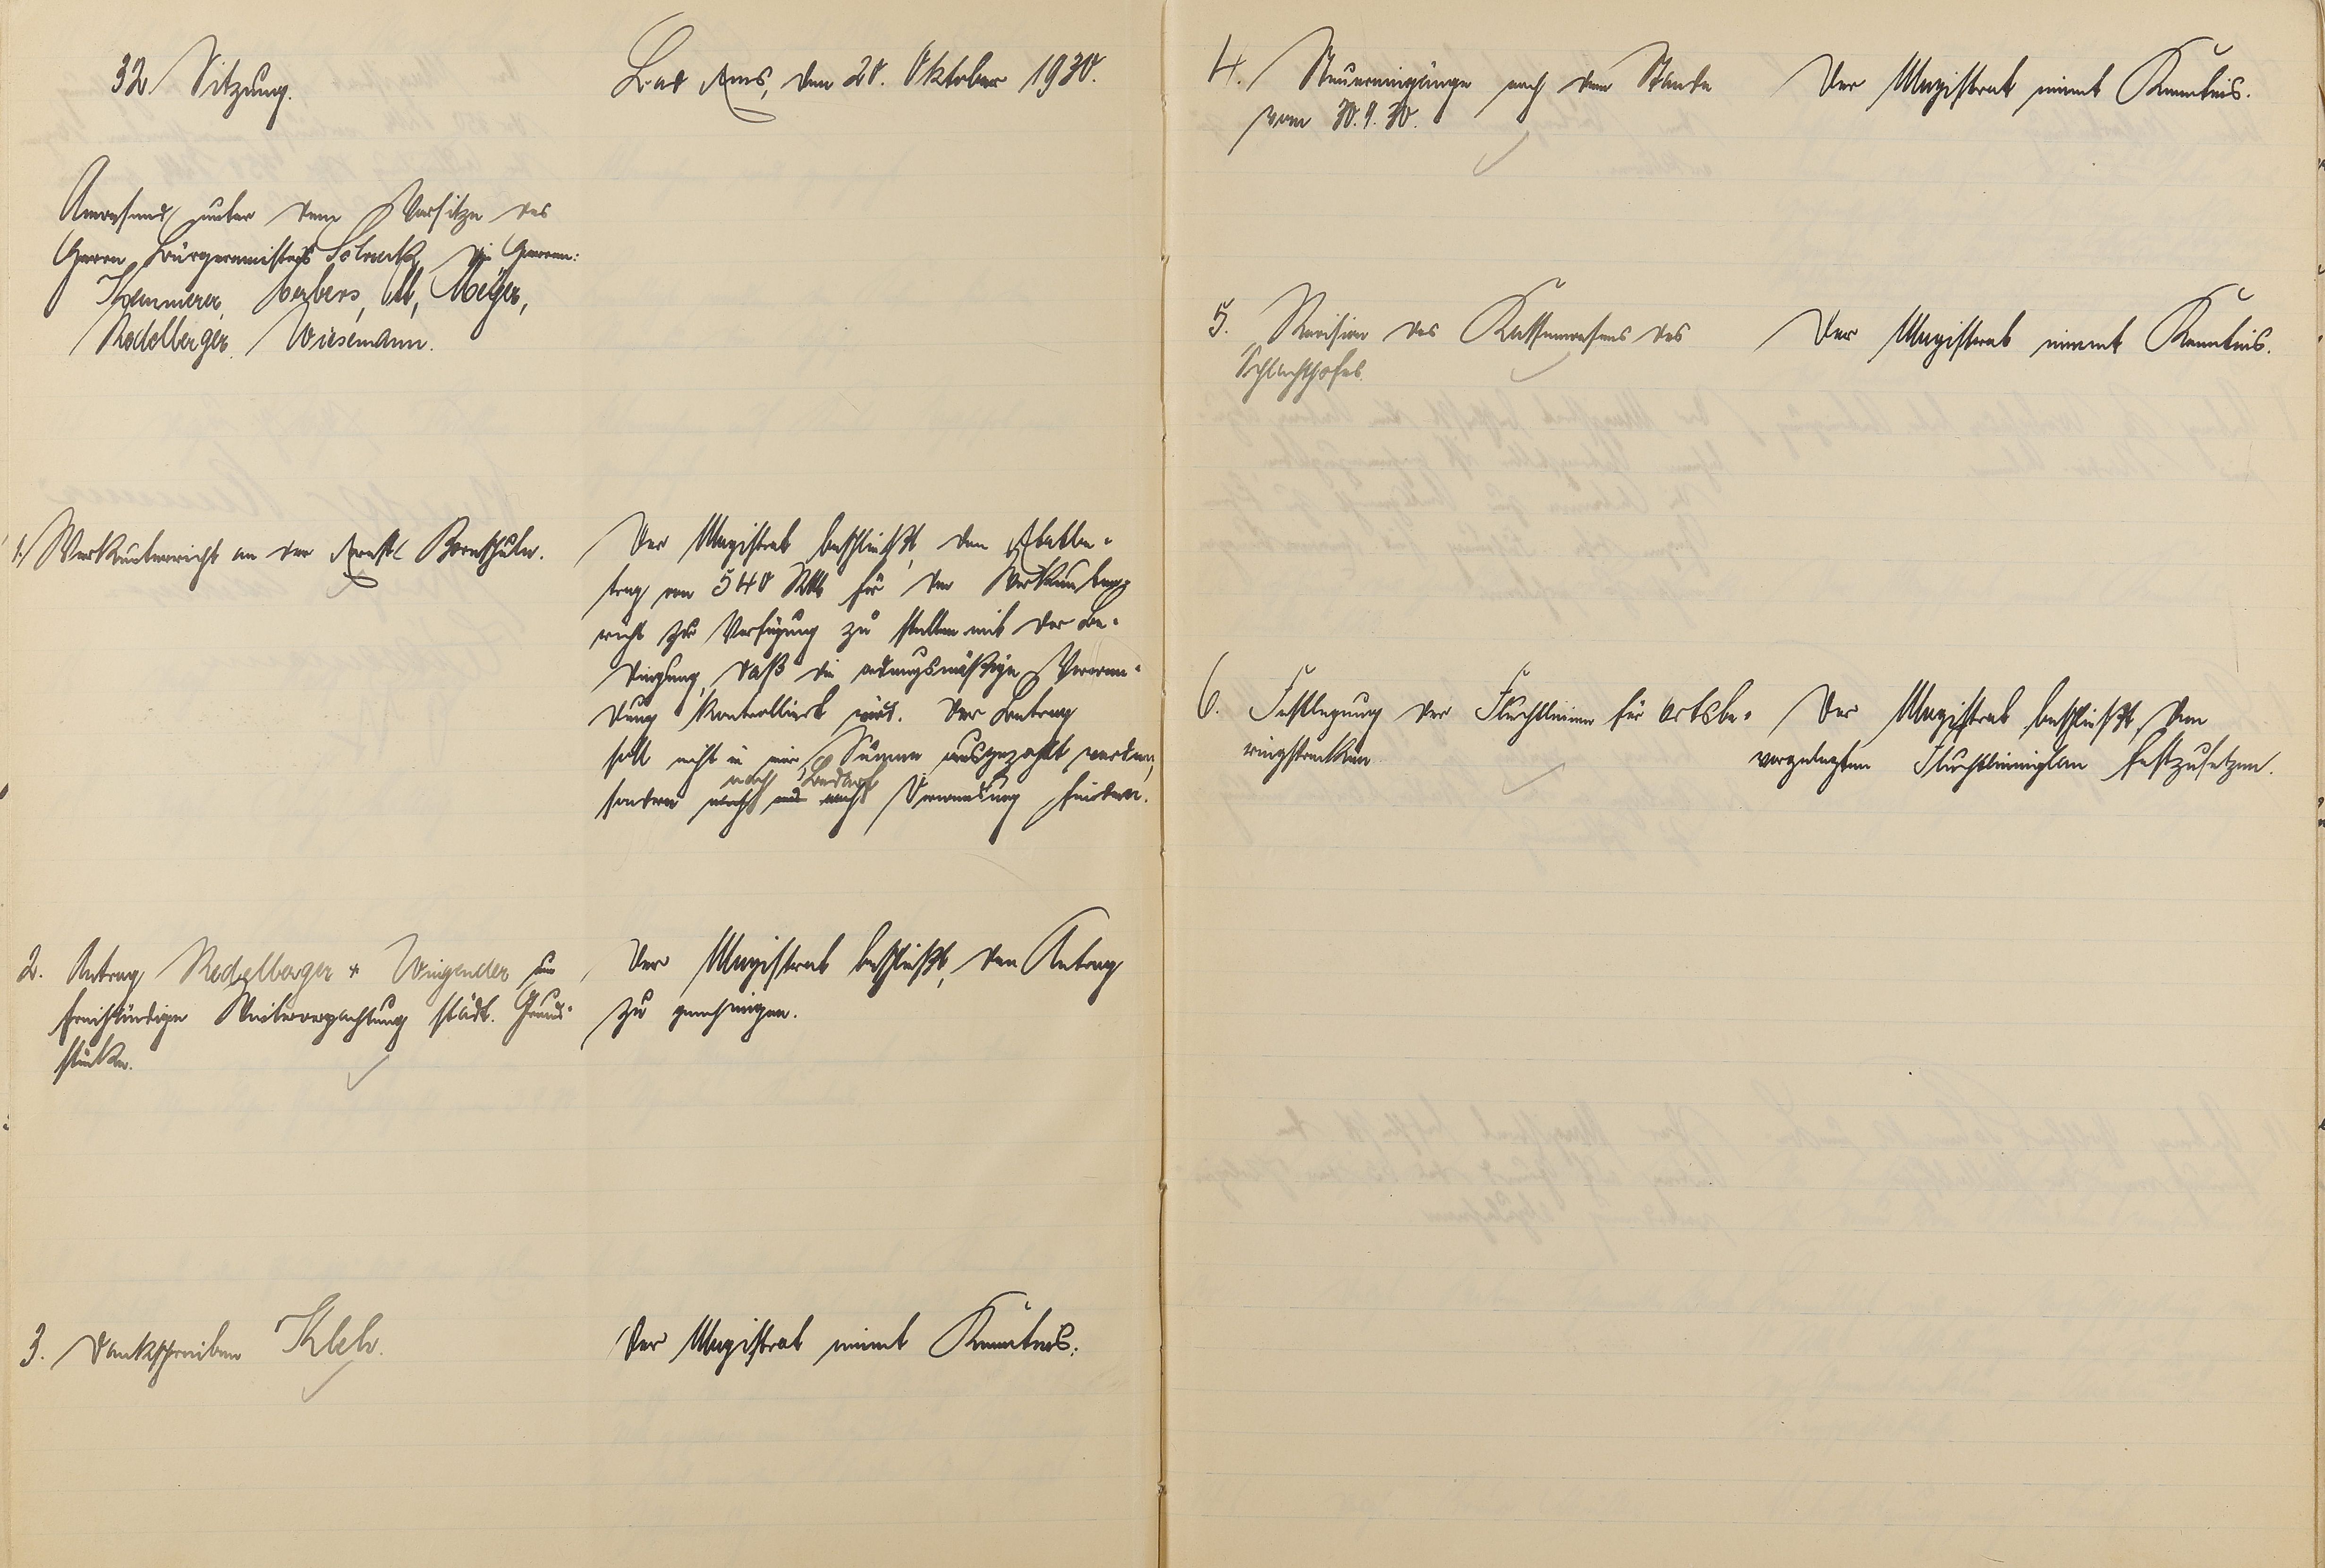 32. Sitzung.
Bad Ems, den 20. Oktober 1930.
Anwesend unter dem Vorsitze des
Herrn Bürgermeisters die Herren:
Kammerer, Ott, Meyer,
Redelberger, Wiesemann.
1. Werkunterricht an der Ernst Bornschule.
Der Magistrat beschließt, den Etatbe-
trag von 540 RM für den Werkunter-
richt zur Verfügung zu stellen mit der Be-
dingung, daß die ordnungsmäßige Verwen-
dung kontrolliert wird. Der Betrag
soll nicht in einer Summe ausgezahlt werden,
nach Bedarf
sondern Verwendung finden.
2. Antrag Redelberger + Wingender um
freihändige Weiterverpachtung städt. Grund-
stücke.
Der Magistrat beschließt, den Antrag
zu genehmigen.
3. Dankschreiben
Der Magistrat nimmt Kenntnis.
4. Steuereingänge nach dem Stande
vom 30.9.30.
Der Magistrat nimmt Kenntnis.
5. Revision des Kassenwesens des
Schlachthofes.
Der Magistrat nimmt Kenntnis.
6. Festlegung der Fluchtlinien für Ortsbe-
ringstrecken
Der Magistrat beschließt, den
vorgelegten Fluchtlinienplan festzusetzen.